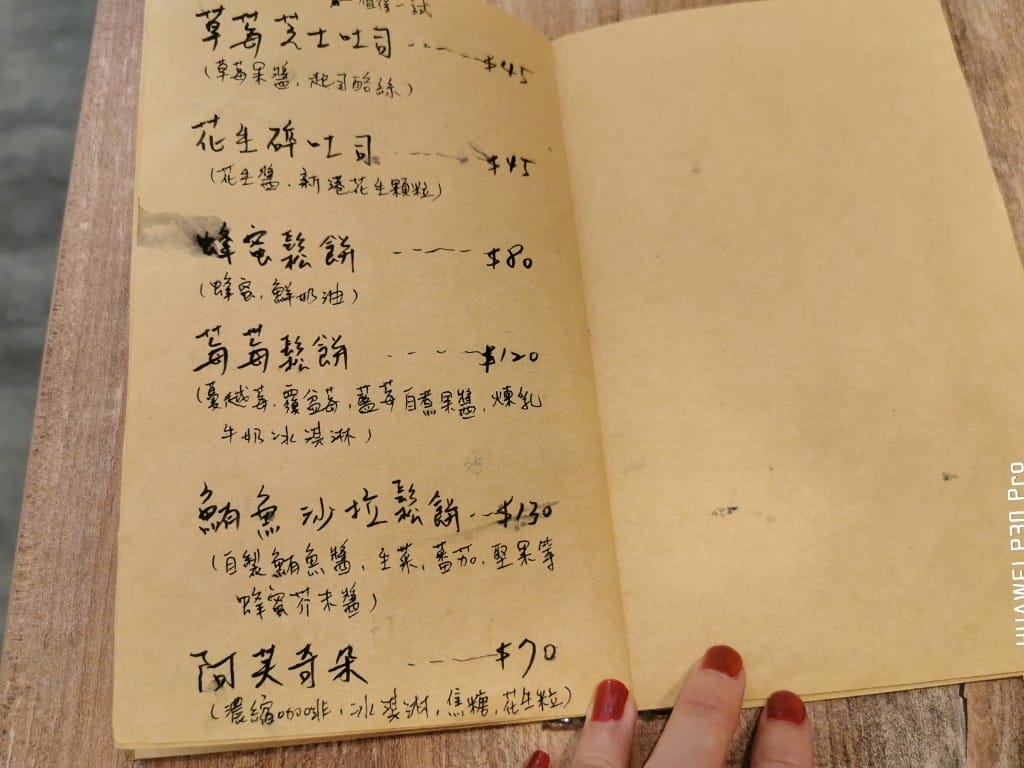 值得一試
草莓芝士吐司 $45
(草莓果醬、起司酪絲)
花生碎吐司 $45
(花生醬、新港花生顆粒)
蜂蜜鬆餅 $80
(蜂蜜、鮮奶油)
莓莓鬆餅 $120
(蔓越莓、覆盆莓、藍莓自煮果醬、煉乳
牛奶冰淇淋)
鮪魚沙拉鬆餅 $130
(自製鮪魚醬、生菜、蕃茄、堅果等
蜂蜜芥末醬)
阿芙奇朵 $70
(濃縮咖啡、冰淇淋、焦糖、花生粒)
HUAWEI P30 Pro